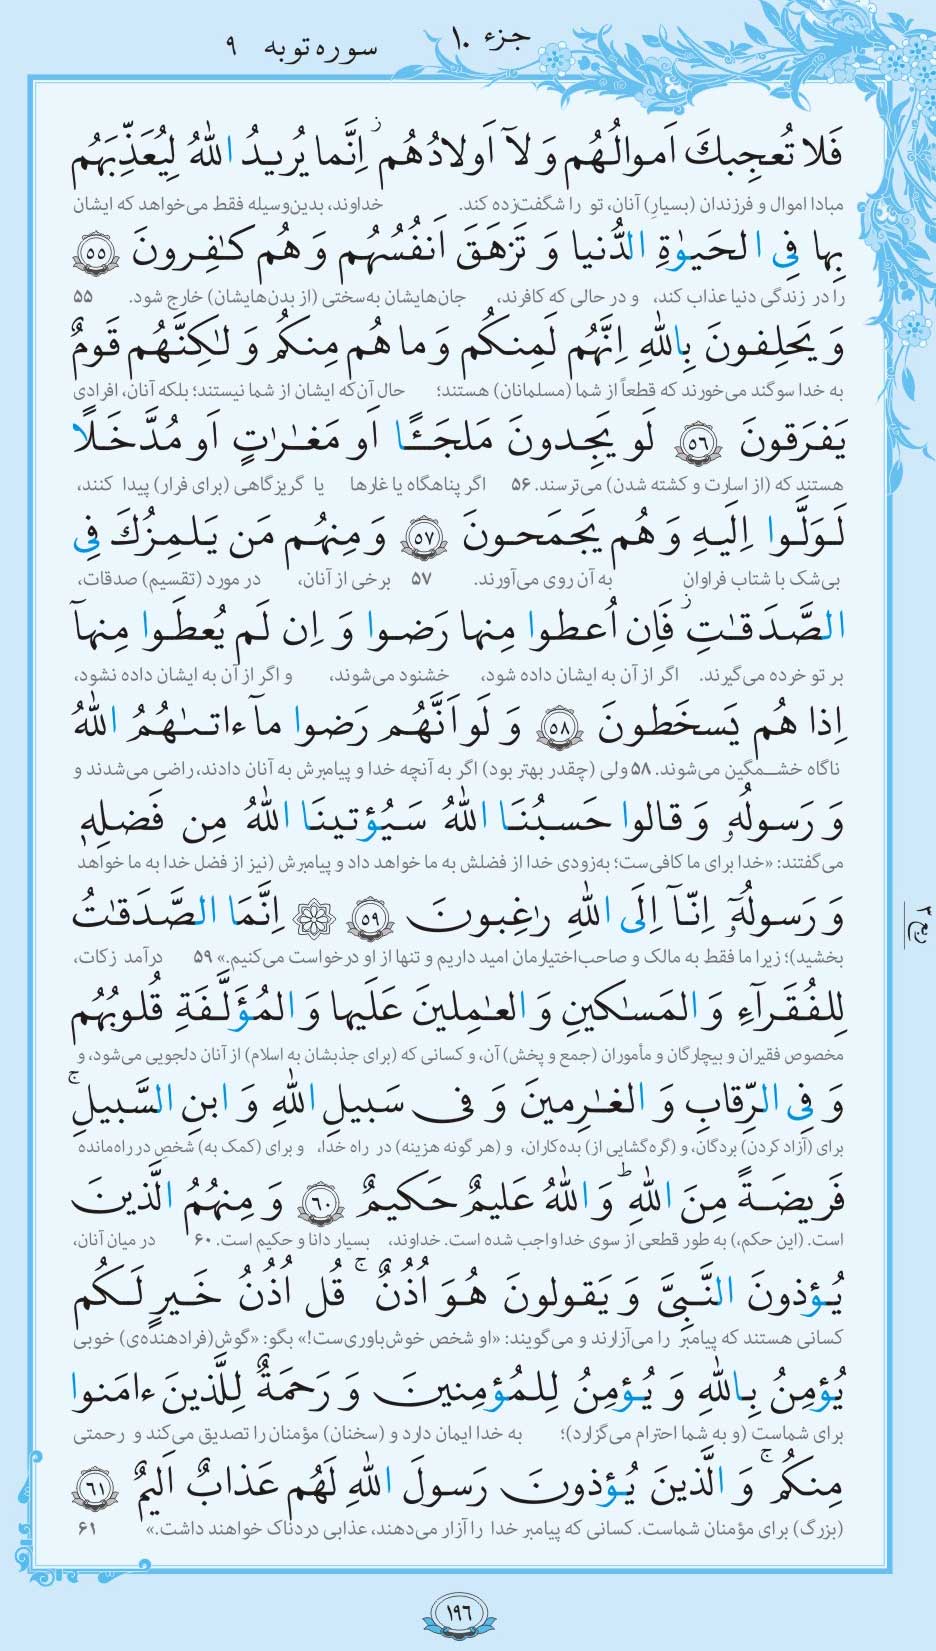 جزء ۱۰
سوره توبه ۹
فَلا تُعجِبكَ اَموالُهُم وَ لاۤ اَولادُهُم ۚ اِنَّما یُریدُ اللّٰهُ لِیُعَذِّبَهُم
مبادا اموال و فرزندان (بسیارِ) آنان، تو را شگفت‌زده کند. خداوند، بدین‌وسیله فقط می‌خواهد که ایشان
بِها فِی الحَیوٰةِ الدُّنیا وَ تَزهَقَ اَنفُسُهُم وَ هُم کٰفِرونَ ﴿۵۵﴾
را در زندگی دنیا عذاب کند، و در حالی که کافرند، جان‌هایشان به‌سختی (از بدن‌هایشان) خارج شود. ۵۵
وَ یَحلِفونَ بِاللّٰهِ اِنَّهُم لَمِنکُم وَ ما هُم مِنکُم وَ لٰکِنَّهُم قَومٌ
به خدا سوگند می‌خورند که قطعاً از شما (مسلمانان) هستند؛ حال آن‌که ایشان از شما نیستند؛ بلکه آنان، افرادی
یَفرَقونَ ﴿۵۶﴾ لَو یَجِدونَ مَلجَـًٔا اَو مَغٰرٰتٍ اَو مُدَّخَلًا
هستند که (از اسارت و کشته شدن) می‌ترسند. ۵۶ اگر پناهگاه یا غارها یا گریزگاهی (برای فرار) پیدا کنند،
لَوَلَّوا اِلَیهِ وَ هُم یَجمَحونَ ﴿۵۷﴾ وَ مِنهُم مَن یَلمِزُکَ فِی
بی‌شک با شتاب فراوان به آن روی می‌آورند. ۵۷ برخی از آنان، در مورد (تقسیم) صدقات،
الصَّدَقٰتِ ۚ فَاِن اُعطوا مِنها رَضوا وَ اِن لَم یُعطَوا مِنهاۤ
بر تو خرده می‌گیرند. اگر از آن به ایشان داده شود، خشنود می‌شوند، و اگر از آن به ایشان داده نشود،
اِذا هُم یَسخَطونَ ﴿۵۸﴾ وَ لَو اَنَّهُم رَضوا ماۤ ءاتىٰهُمُ اللّٰهُ
ناگاه خشمگین می‌شوند. ۵۸ ولی (چقدر بهتر بود) اگر به آنچه خدا و پیامبرش به آنان دادند، راضی می‌شدند و
وَ رَسولُهٗ وَ قالوا حَسبُنَا اللّٰهُ سَیُؤتینَا اللّٰهُ مِن فَضلِهٖ
می‌گفتند: «خدا برای ما کافی‌ست؛ به‌زودی خدا از فضلش به ما خواهد داد و پیامبرش (نیز از فضل خدا به ما خواهد
وَ رَسولُهٗۤ اِنّاۤ اِلَی اللّٰهِ رٰغِبونَ ﴿۵۹﴾ اِنَّمَا الصَّدَقٰتُ
بخشید)؛ زیرا ما فقط به مالک و صاحب‌اختیارمان امید داریم و تنها از او درخواست می‌کنیم.» ۵۹ درآمد زکات،
ربع ۳
لِلفُقَرآءِ وَ المَسٰکینِ وَ العٰمِلینَ عَلَیها وَ المُؤَلَّفَةِ قُلوبُهُم
مخصوص فقیران و بیچارگان و مأموران (جمع و پخش) آن، و کسانی که (برای جذبشان به اسلام) از آنان دلجویی می‌شود، و
وَ فِی الرِّقابِ وَ الغٰرِمینَ وَ فی سَبیلِ اللّٰهِ وَ ابنِ السَّبیلِ ۚ
برای (آزاد کردن) بردگان، و (گره‌گشایی از) بده‌کاران، و (هر گونه هزینه) در راه خدا، و برای (کمک به) شخصِ در راه‌مانده
فَریضَةً مِنَ اللّٰهِ ؕ وَ اللّٰهُ عَلیمٌ حَکیمٌ ﴿۶۰﴾ وَ مِنهُمُ الَّذینَ
است. (این حکم،) به طور قطعی از سوی خدا واجب شده است. خداوند، بسیار دانا و حکیم است. ۶۰ در میان آنان،
یُؤذونَ النَّبِیَّ وَ یَقولونَ هُوَ اُذُنٌ ۚ قُل اُذُنُ خَیرٍ لَکُم
کسانی هستند که پیامبر را می‌آزارند و می‌گویند: «او شخص خوش‌باوری‌ست!» بگو: «گوش(فرادهنده‌ی) خوبی
یُؤمِنُ بِاللّٰهِ وَ یُؤمِنُ لِلمُؤمِنینَ وَ رَحمَةٌ لِلَّذینَ ءامَنوا
برای شماست (و به شما احترام می‌گزارد)؛ به خدا ایمان دارد و (سخنان) مؤمنان را تصدیق می‌کند و رحمتی
مِنکُم ۚ وَ الَّذینَ یُؤذونَ رَسولَ اللّٰهِ لَهُم عَذابٌ اَلیمٌ ﴿۶۱﴾
(بزرگ) برای مؤمنان شماست. کسانی که پیامبر خدا را آزار می‌دهند، عذابی دردناک خواهند داشت.» ۶۱
۱۹۶